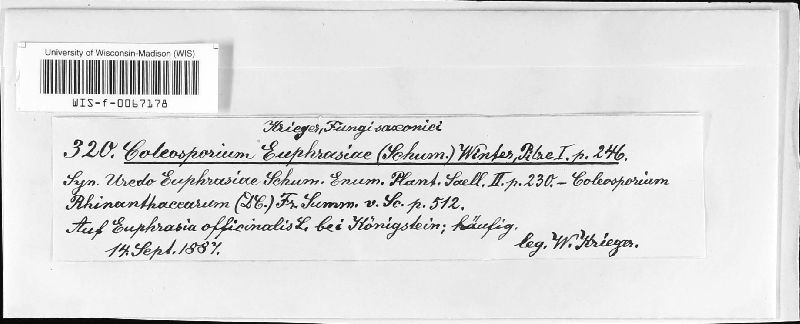 University of Wisconsin-Madison (WIS)
WIS-f-0067178
Krieger, Fungi saxonici
320. Coleosporium Euphrasiae (Schum.) Winter, Pilze I. p. 246.
Syn. Uredo Euphrasiae Schum. Enum. Plant. Saell. II. p. 230. – Coleosporium
Rhinanthacearum (DC.) Fr. Summ. v. Sc. p. 512.
Auf Euphrasia officinalis L. bei Königstein; häufig.
14. Sept. 1887. leg. W. Krieger.